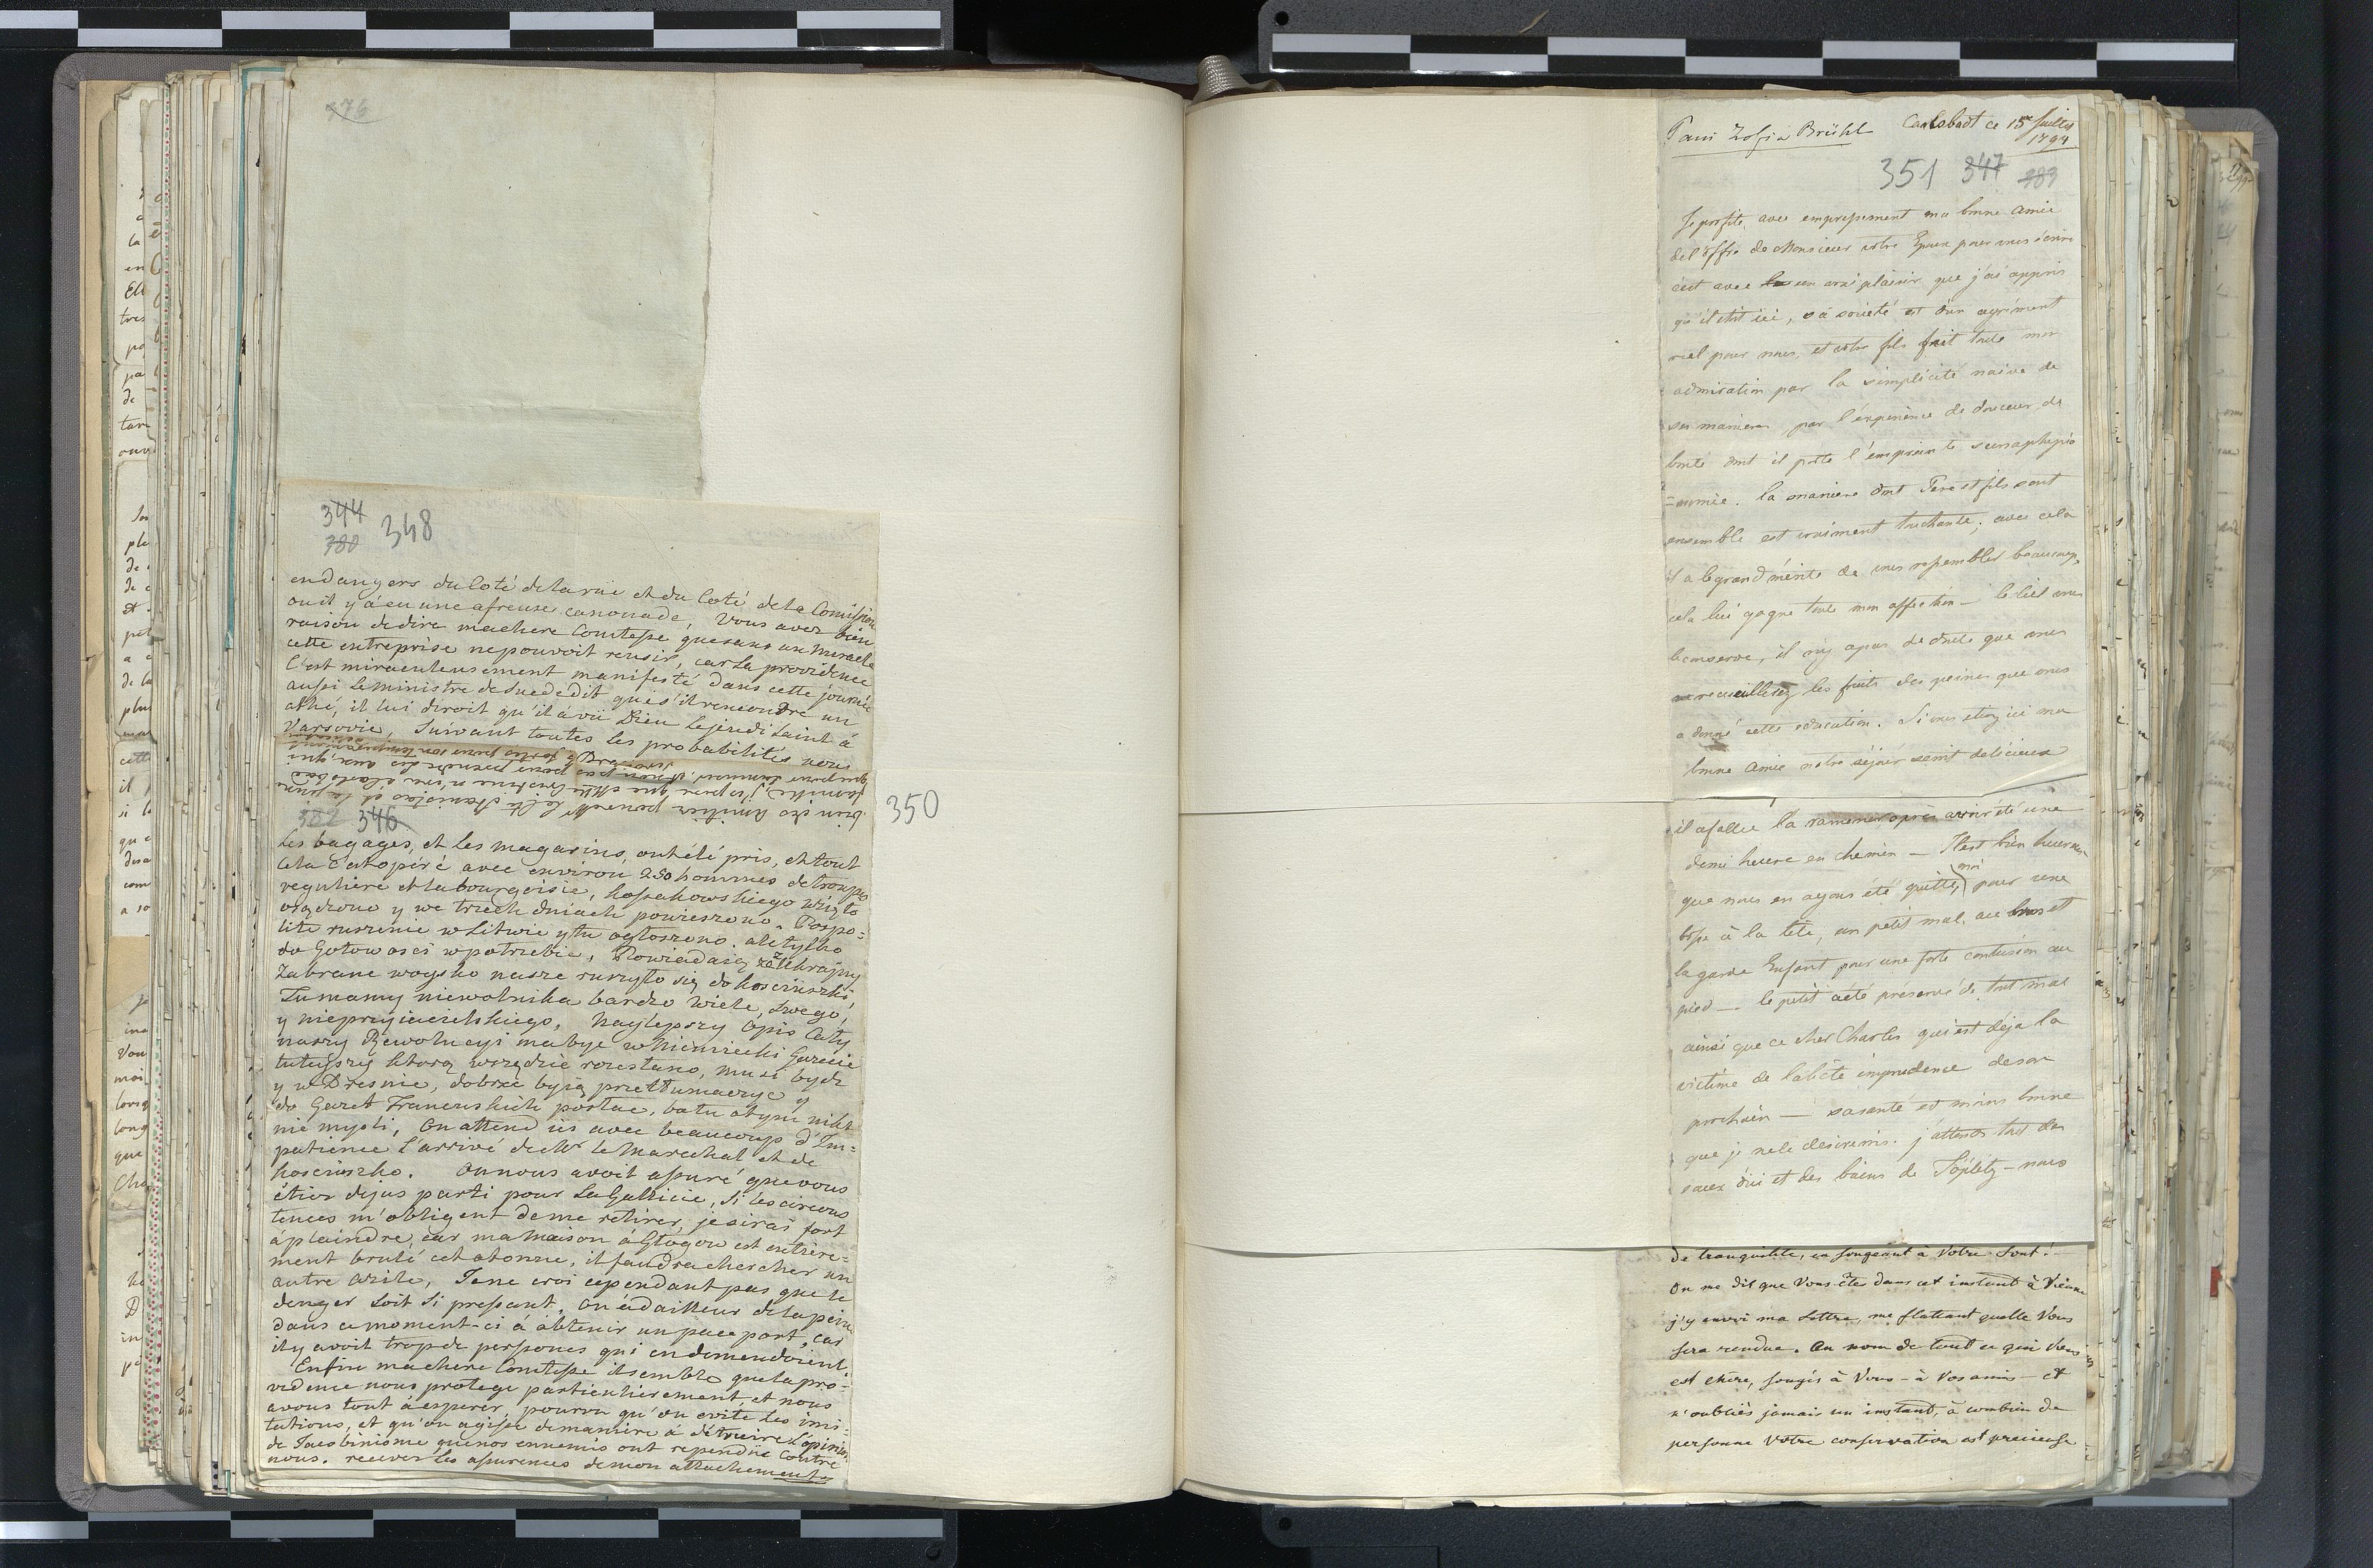 376
344 348
380
en dangers du Coté de la rüe et du Coté de la Comission
ou il y a eu une afreuse canonade, Vous avez bien
raison de dire ma chere Comtesse que sans un Miracle
cette entreprise ne pouvoit reusir, car La providence
c'est miraculeusement manifesté dans cette journée
aussi Le ministre de Suede dit que s'il rencondre un
athé, il lui diroit qu'il a vü Dieu Le jeudi Saint à
Varsovie, Suivant toutes les probabilités nous
350
382 346
Les bagages, et les magasins, ont été pris, et tout
cela s'est opéré avec environ 250 hommes de troupes
reguliere et la bourgeoisie, Kossakowskiego wzięto
osądzono y we trzech dniach powieszono. Pospo=
lite ruszenie w Litwie y tu ogłoszono, ale tylko
do Gotowosci w potrzebie, Powiadaią że z Ukrainy
Zabrane woysko nasze ruszyło się do Kosciuszki,
Tu mamy niewolnika bardzo wiele, swego,
y nieprzyiacielskiego, Naylepszy Opis Cały
naszy Rewolucyi ma byc w Niemiecki Gazecie
tutejszy ktorą wszędzie rozesłano, musi bydz
y w Dresnie, dobrze by ią przetłumaczyc y
do Gazet Francuskich posłac, bo tu o tym nikt
nie mysli, On attend ici avec beaucoup d'Im=
patience l'arrivé de Mr le Marechal et de
Kosciuszko. On nous avoit assuré que vous
étiez dejas parti pour La Gallicie, Si les circons
tences m'obligent de me retirer, je sirai fort
à plaindre, car ma Maison à Głogow est entière=
ment brulé cet atonne, il faudra chercher un
autre azile, Je ne croi cependant pas que le
denger soit si pressant. On a d'ailleur de la peine
dans ce moment-ci à obtenir un passeport, car
il y avoit trop de personnes qui en demendoient.
Enfin ma chere Comtesse il semble que la pro=
vidence nous protege particulièrement, et nous
avons tout à esperer, pourvu qu'on evite les imi=
tations, et qu'on agisse de maniere à détruire L'opinion
de Jacobinisme que nos ennemis ont rependüe Contre
nous. recevez les assurences de mon attachement
Pani Zofia Brühl Carlsbadt ce 15e Juillet
1794
351 347 383
Je profite avec empressement ma bonne Amie
de l'offre de Monsieur votre Epoux pour vous écrire
c'est avec un vrai plaisir que j'ai appris
qu'il étoit ici, sa société est d'un agrément
réel pour nous, et votre fils fait toute mon
admiration par la simplicité naïve de
ses manières par l'expression de douceur de
bonté dont il porte l'empreinte sur sa phisio
=nomie. la maniere dont Pere et fils sont
ensemble est vraiment touchante; avec cela
il a le grand mérite de vous ressembler beaucoup,
cela lui gagne toute mon affection — le Ciel vous
le conserve, il n'y a pas de doute que vous
recueilleréz les fruits des peines que vous
a donné cette education. Si vous etiez ici ma
bonne Amie notre séjour seroit delicieux
il a fallu la ramener après avoir été une
demi heure en chemin — Il est bien heureux
que nous en ayons été quittes, moi pour une
bosse à la tête, un petit mal au bras et
la garde Enfant pour une forte contusion au
pied — le petit a été préservé de tout mal
ainsi que ce cher Charles qui est déja la
victime de la bête imprudence de son
prochain — sa santé est moins bonne
que je ne le désirerois. j'attends tout des
eaux d'ici et des bains de Töplitz — nous
de tranquilité, en songeant à Votre Sort!
On me dit que Vous ête dans cet instant à Vienne
j'y envoi ma Lettre, me flattant quelle Vous
sera rendue. Au nom de tout ce qui Vous
est chere, songés à Vous — à Vos amis — et
n'oubliés jamais un instant, à combien de
personne Votre conservation est precieuse